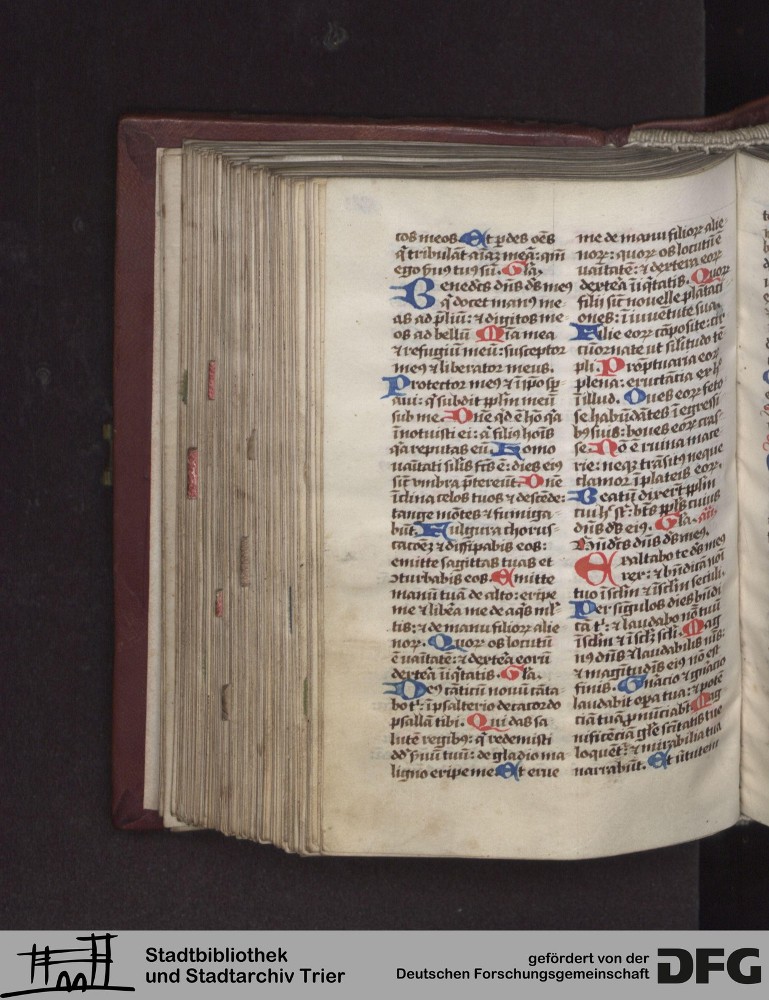 cos meos. Et ꝑdes oēs
q̄ tribulāt aīaꝫ meā: qm̄
ego ẜuus tuꝰ sū. Gl̄a.
Benedc̄s dn̄s ds̄ meꝰ
q̄ docet manꝰ me
as ad p̄liū: ⁊ digitos me
os ad bellū. Mīa mea
⁊ refugiū meū: susceptor
meꝰ ⁊ liberator meus.
Protector meꝰ ⁊ ī ip̄o sp̄
aui: q̄ subdit pp̄lm meū
sub me. Dn̄e qͥd ē hō qa
īnotuisti ei: aͭ filiꝰ hoīs
qa reputas eū. Homo
uaītati sil̄is fc̄s ē: dies eiꝰ
sic̄ vmbra p̄tereūt. Dn̄e
īclina celos tuos ⁊ descēde:
tange mōtes ⁊ fumiga
būt. Fulgura chorus
cacōeꝫ ⁊ dissipabis eos:
emitte sagittas tuas et
ꝯturbabis eos. Emitte
manū tuā de alto: eripe
me ⁊ lib̄a me de aqͥs ml̄
tis: ⁊ de manu filioꝝ alie
noꝝ. Quoꝝ os locutū
ē uaītatē: ⁊ dext̄a eorū
dext̄a īiqͥtatis. Gl̄a.
Deꝰ cāticū nouū cāta
bo tͥ: ī psalterio decacordo
psallā tibi. Qui das sa
lutē regibꝰ: qͥ redemisti
dd̄ ẜuū tuū: de gladio ma
ligno eripe me. Et erue
me de manu filioꝝ alie
noꝝ: quoꝝ os locutū ē
uaītatē: ⁊ dextera eoꝝ
dext̄a īiqͥtatis. Quoꝝ
filii sic̄ nouelle plātaci
ones: ī iuuētute sua.
Filie eoꝝ cōposite: cir
cūornate ut sil̄itudo tē
pli. Promptuaria eoꝝ
plena: eructācia ex hͦ
ī illud. Oues eoꝝ feto
se habūdātes ī egressi
bꝰ suis: boues eoꝝ cras
se. Nō ē ruina mace
rie: neqꝫ trāsitꝰ neque
clamor ī plateis eoꝝ.
Beatū dixert̄ pp̄lm
cui h̄ st̄: bt̄s pp̄ls cuius
dn̄s ds̄ eiꝰ. Gl̄a. an̄.
Bn̄dc̄s dn̄s ds̄ meꝰ.
Exaltabo te ds̄ meꝰ
rex: ⁊ bn̄dicā noī
tuo ī sc̄lm ⁊ ī sc̄lm seculi.
Per sīgulos dies bn̄di
cā tͥ: ⁊ laudabo nom̄ tuū
ī sc̄lm ⁊ ī sc̄lꝫ sc̄li. Mag
nꝰ dn̄s ⁊ laudabilis nīs:
⁊ magītudīs eiꝰ nō est
finis. Gn̄acio ⁊ gn̄acio
laudabit oꝑa tua: ⁊ potē
ciā tuā ꝓnūciabt̄. Mag
nificēciā gl̄e sc̄itatis tue
loquēt̄: ⁊ mirabilia tua
narrabūt. Et ūtutem
Stadtbibliothek
und Stadtarchiv Trier
gefördert von der
Deutschen Forschungsgemeinschaft
DFG